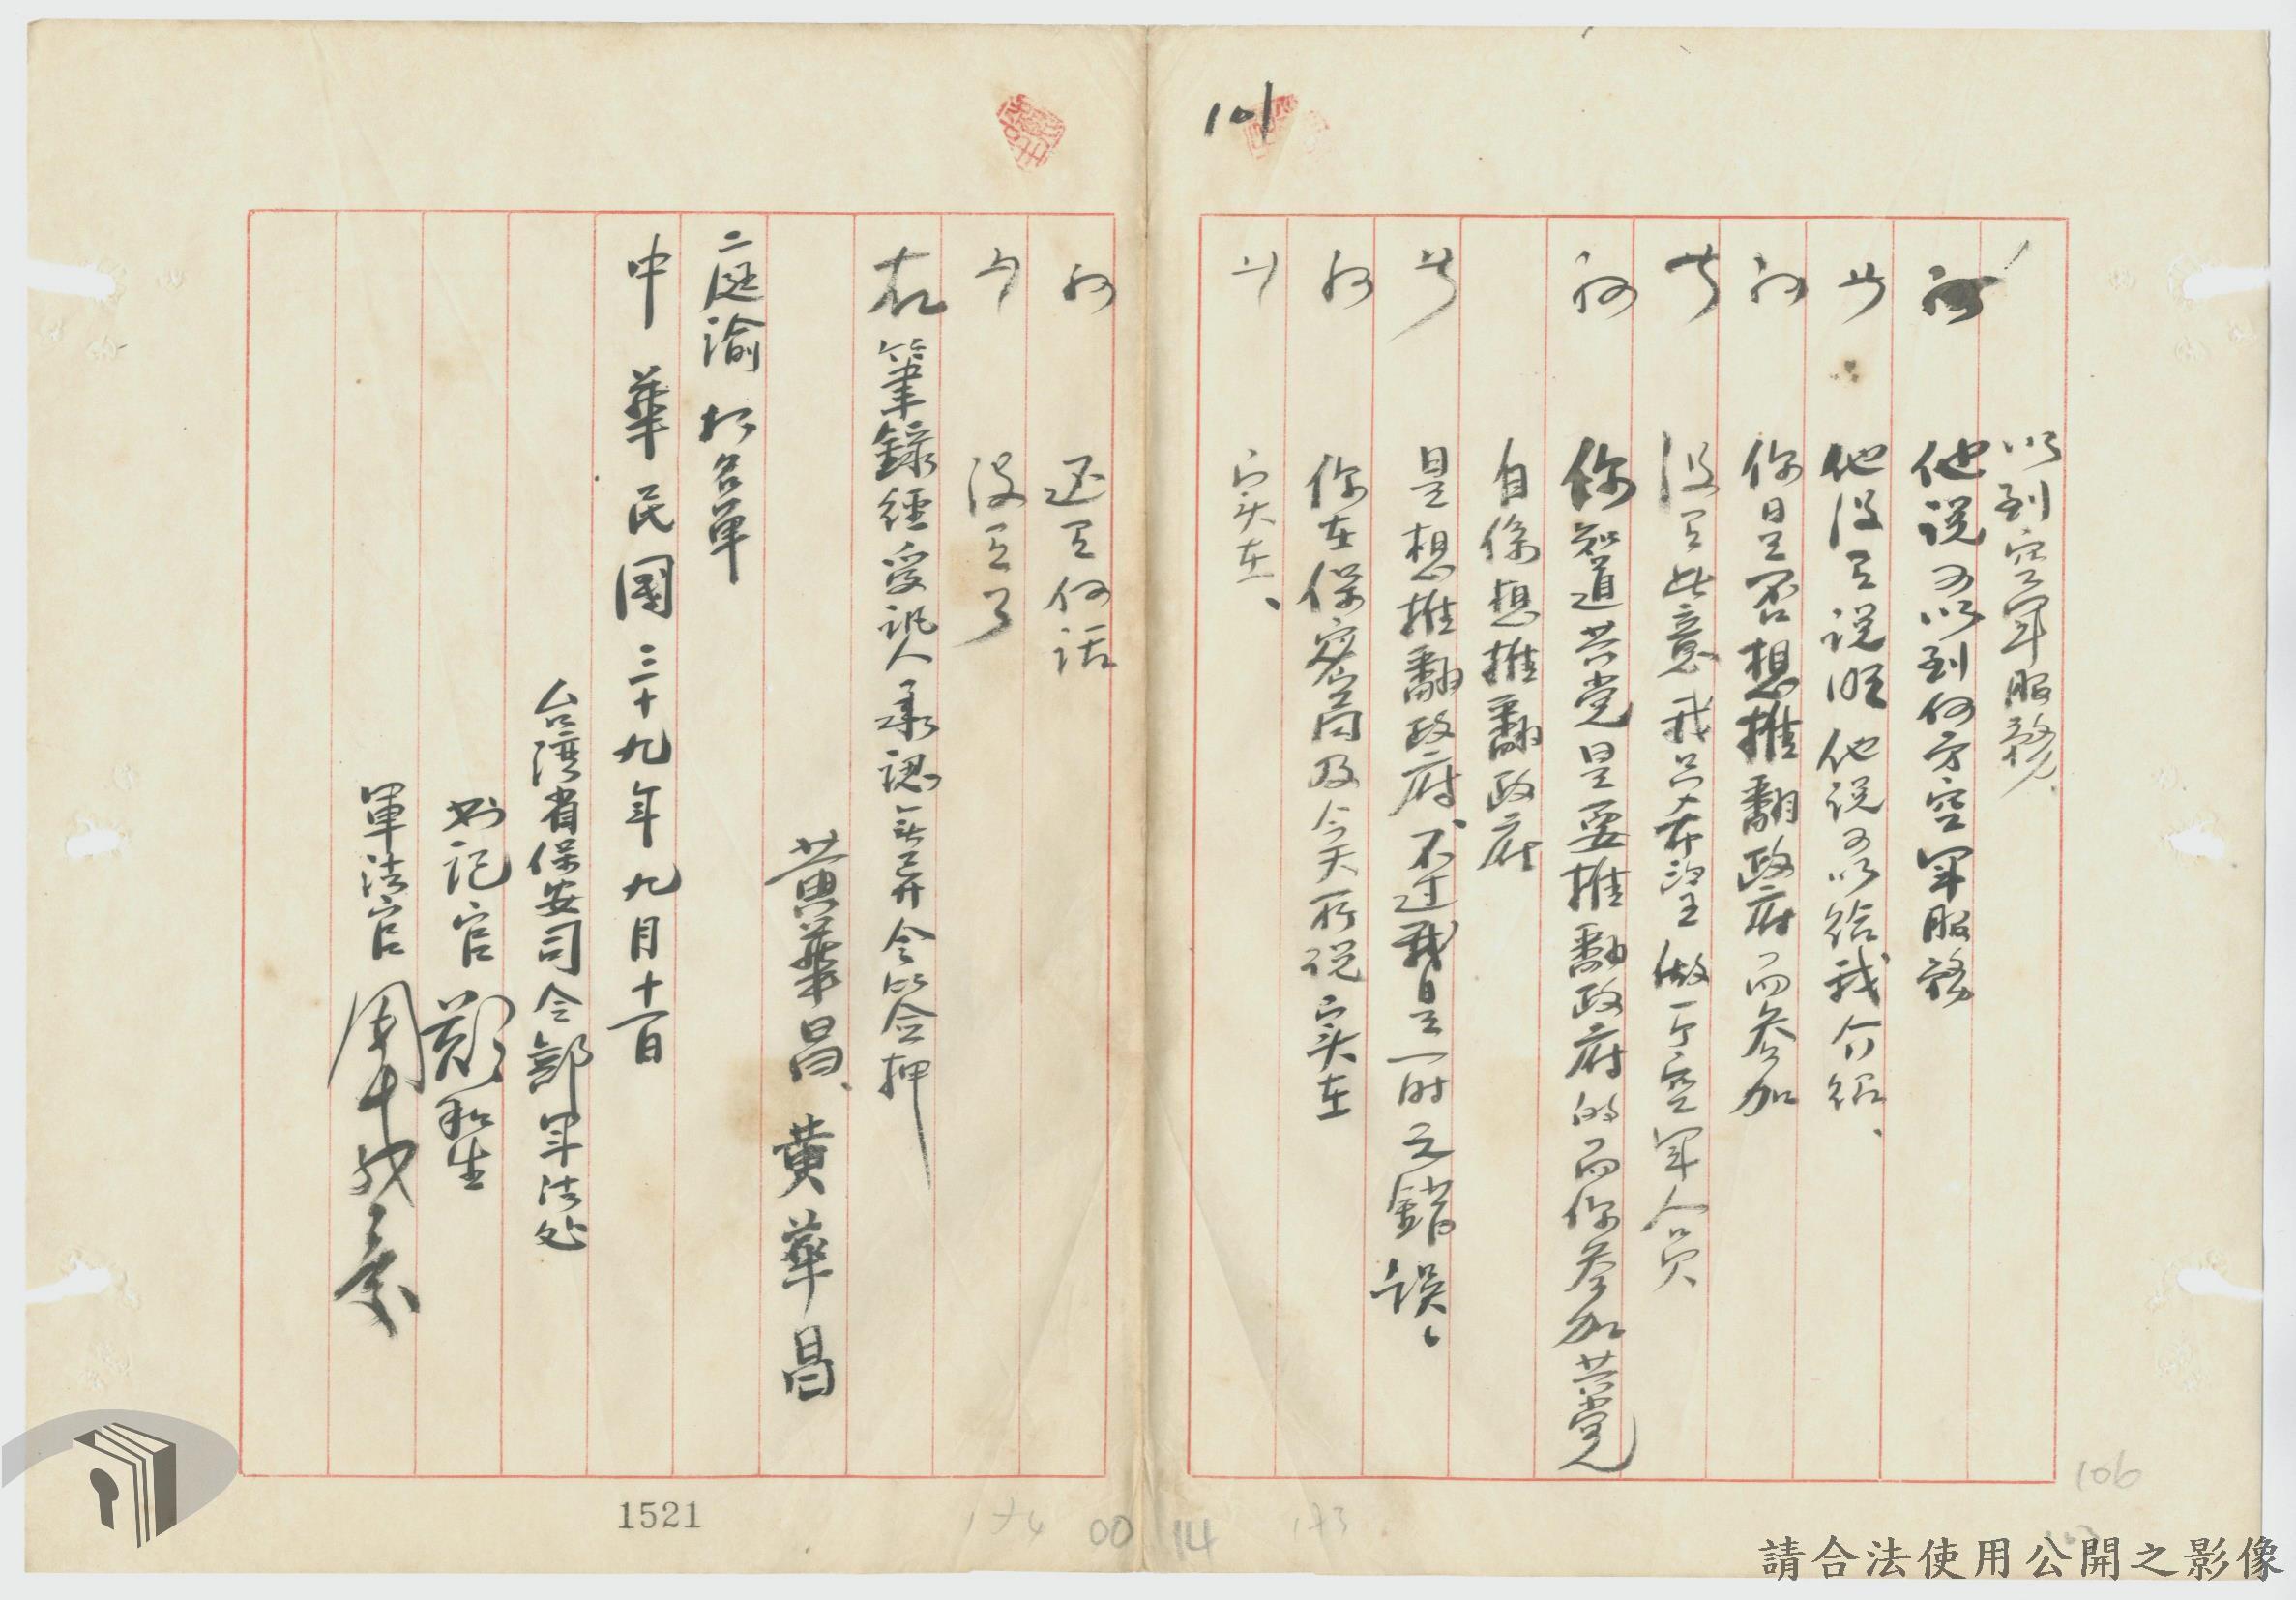 101
以到空軍服務
問 他說可以到何方空軍服務
答 他沒有說明他說可以給我介紹、
問 你是否想推翻政府而參加
答 沒有此意我只希望做一个空軍人員
問 你知道共党是要推翻政府的而你參加共党
自係想推翻政府
答 是想推翻政府不过我是一时之錯誤、
問 你在保密局及今天所说实在
答 实在、
問 还有何话
答 沒有了
右筆錄經受訊人承認無異令其簽押
黃華昌、黃華昌
庭諭 抄名單
中華民國三十九年九月十一日
台湾省保安司令部军法处
书记官 鄭和生
軍法官 周
1521
174
00
14
173
106
請合法使用公開之影像